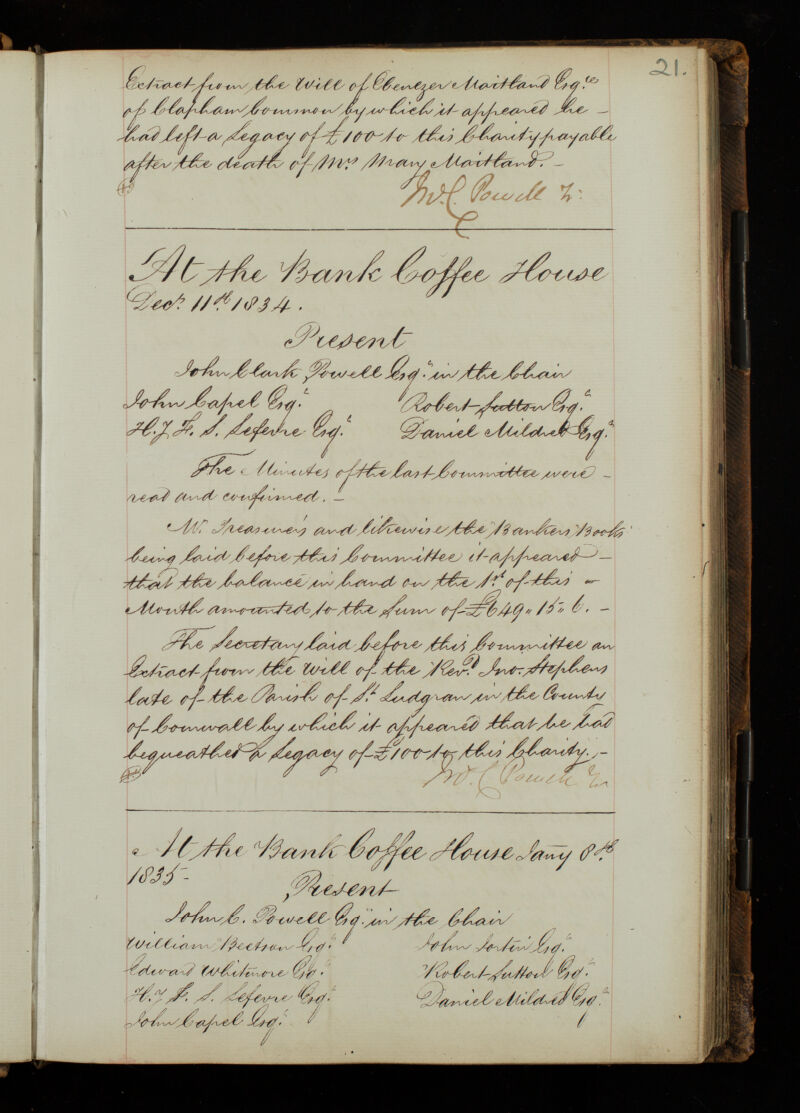 21.
Extract from the Will of Ebenezer Maitland Esqre
of Clapham Common by which it appeared he –
had left a Legacy of £100 to this Charity payable
after the death of Mrs Mary Maitland. –
Jno. C. Powell Tr:
At the Bank Coffee House
Decr. 11th. 1834.
Present
John Clark Powell Esqr. in the Chair
John Capel Esqr. Robert Sutton Esqr.
H. J. F. S. Lefevre Esqr. Daniel Mildred Esqr.
The Minutes of the last Committee were –
read and confirmed. –
Mr. Treasurer's and likewise the Bankers Books
being laid before this Committee it appeared –
that the balance in hand on the 1st of this –
Month amounted to the Sum of £649,, 15,, 6. –
The Secretary laid before this Committee an
Extract from the Will of the Revd. Jno. Stephens
late of the Parish of St. Ludgvan in the County
of Cornwall by which it appeared that he had
bequeathed a Legacy of £100 to this Charity. –
Jno. C Powell Tr
At the Bank Coffee House Jany 8th.
1835 –
Present
John C. Powell Esqr. in the Chair
William Beetson Esqr. John Jortin Esqr.
Edward Whitmore Esqr. Robert Sutton Esqr.
H. J. F. S. Lefevre Esqr. Daniel Mildred Esqr.
John Capel Esqr.